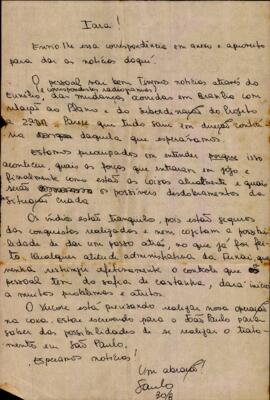 Iara!
Envio lhe essa correspondência em anexo e aproveito
para dar as notícias daqui.
O pessoal vai bem. Tivemos notícias através do
Eurélio, (e correspondentes radiogramas) das mudanças ocorridas em Brasília com
relação ao Plano e da subordinação do Projeto
Parece que tudo saiu em direção contrá-
ria daquela que esperávamos.
Estamos preocupados em entender isso
aconteceu, quais as forças que entraram em jogo e
finalmente como estão as coisas atualmente e quais
serão os possíveis desdobramentos da
situação criada.
Os índios estão tranquilos, pois estão seguros
das conquistas realizadas e nem cogitam a possibi-
lidade de dar um passo atrás, no que já foi fei-
to. Qualquer atitude administrativa da Funai, que
venha restringir efetivamente o controle que o
pessoal tem da safra de castanha, dará início
a muitos problemas e atritos.
O está precisando realizar nova operação
na coxa. Estou escrevendo para São Paulo para
saber das possibilidades de se realizar o trata-
mento em São Paulo.
Esperamos notícias!
Um abraço!
Saulo
30/8